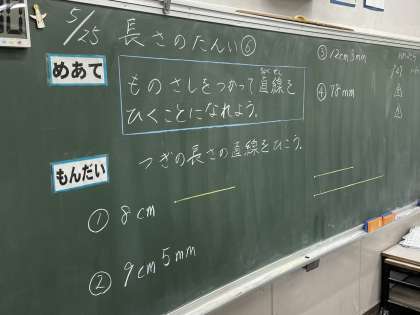 5/25 長さのたんい⑥
めあて
ものさしをつかって直線を
ひくことになれよう。
もんだい
つぎの長さの直線をひこう。
① 8cm
② 9cm 5mm
③ 12cm 3mm
④ 78mm